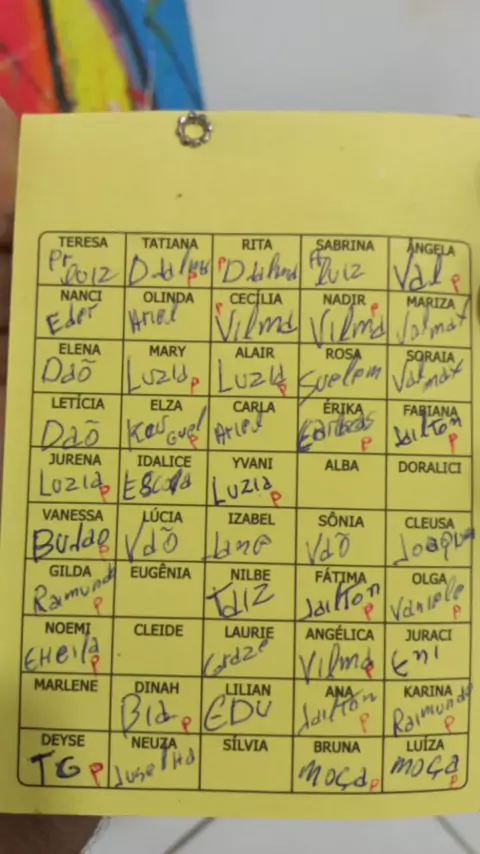 TERESA TATIANA RITA SABRINA ÂNGELA
Pr Luiz Dalma P P Dalma Pr Luiz Val P
NANCI OLINDA CECÍLIA NADIR MARIZA
Eder Ariel P Vilma P Vilma Valmax
ELENA MARY ALAIR ROSA SORAIA
Daõ Luzia P Luzia P Suelem Valmax
LETÍCIA ELZA CARLA ÉRIKA FABIANA
Daõ P Ariel P Jailton P
JURENA IDALICE YVANI ALBA DORALICI
Luzia P Luzia P
VANESSA LÚCIA IZABEL SÔNIA CLEUSA
P Vdõ Vdõ
GILDA EUGÊNIA NILBE FÁTIMA OLGA
Raimundo P Taiz Jailton P P
NOEMI CLEIDE LAURIE ANGÉLICA JURACI
EHeila P Vilma P Eni
MARLENE DINAH LILIAN ANA KARINA
Bia P EDU Jailton P Raimundo P
DEYSE NEUZA SÍLVIA BRUNA LUÍZA
TG P MOÇA P MOÇA P